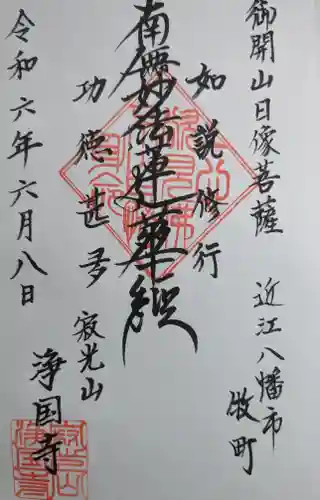 御開山日像菩薩
近江八幡市
牧町
如説修行
南無妙法蓮華経
功德甚多
寂光山
浄国寺
令和六年六月八日